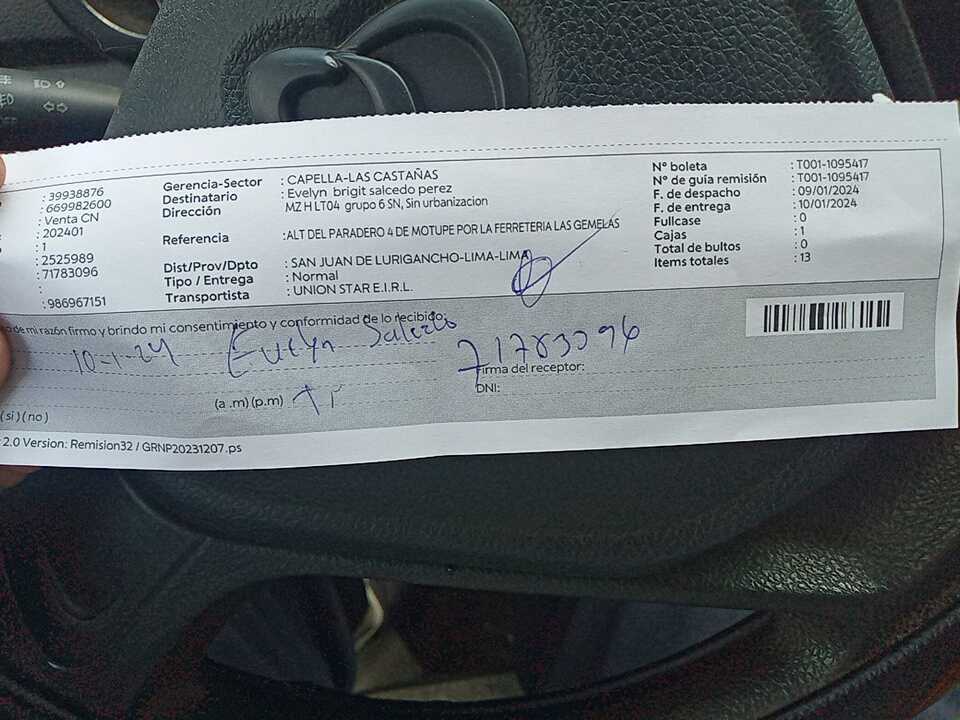 : 39938876
: 669982600
: Venta CN
: 202401
: 1
: 2525989
: 71783096
:
: 986967151
Gerencia-Sector : CAPELLA-LAS CASTAÑAS
Destinatario : Evelyn brigit salcedo perez
Dirección MZ H LT04 grupo 6 SN, Sin urbanizacion
Referencia :ALT DEL PARADERO 4 DE MOTUPE POR LA FERRETERIA LAS GEMELAS
Dist/Prov/Dpto : SAN JUAN DE LURIGANCHO-LIMA-LIMA
Tipo / Entrega : Normal
Transportista : UNION STAR E.I.R.L.
N° boleta : T001-1095417
N° de guía remisión : T001-1095417
F. de despacho : 09/01/2024
F. de entrega : 10/01/2024
Fullcase : 0
Cajas : 1
Total de bultos : 0
Items totales : 13
o de mi razón firmo y brindo mi consentimiento y conformidad de lo recibido:
10-1-24 Evelyn Salcedo 71783096
Firma del receptor:
DNI:
(a .m) (p.m)
(si) (no)
2.0 Version: Remision32 / GRNP20231207.ps